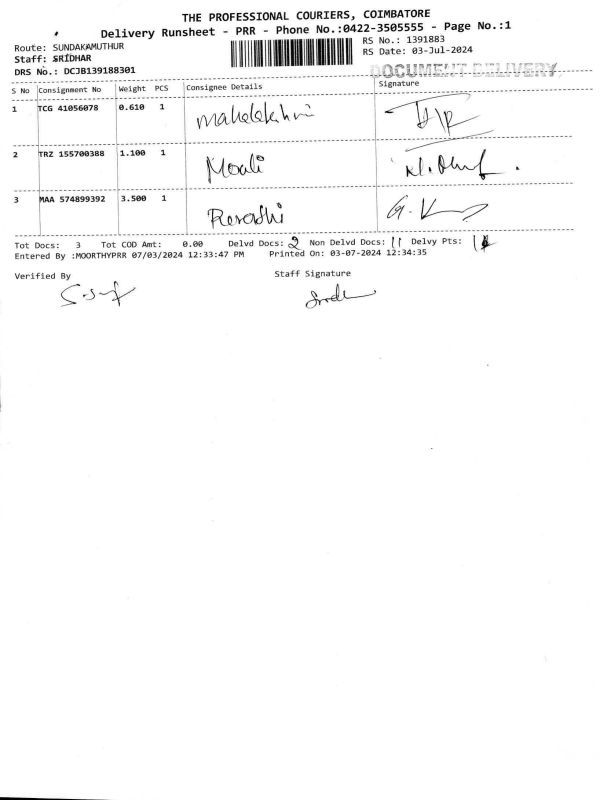 THE PROFESSIONAL COURIERS, COIMBATORE
Delivery Runsheet - PRR - Phone No.:0422-3505555 - Page No.:1
Route: SUNDAKAMUTHUR
RS No.: 1391883
Staff: SRIDHAR
RS Date: 03-Jul-2024
DRS No.: DCJB139188301
DOCUMENT DELIVERY
S No Consignment No Weight PCS Consignee Details Signature
1 TCG 41056078 0.610 1 Mahalakshmi
2 TRZ 155700388 1.100 1 Mouli
3 MAA 574899392 3.500 1
Tot Docs: 3 Tot COD Amt: 0.00 Delvd Docs: 2 Non Delvd Docs: 11 Delvy Pts:
Entered By :MOORTHYPRR 07/03/2024 12:33:47 PM Printed On: 03-07-2024 12:34:35
Verified By Staff Signature